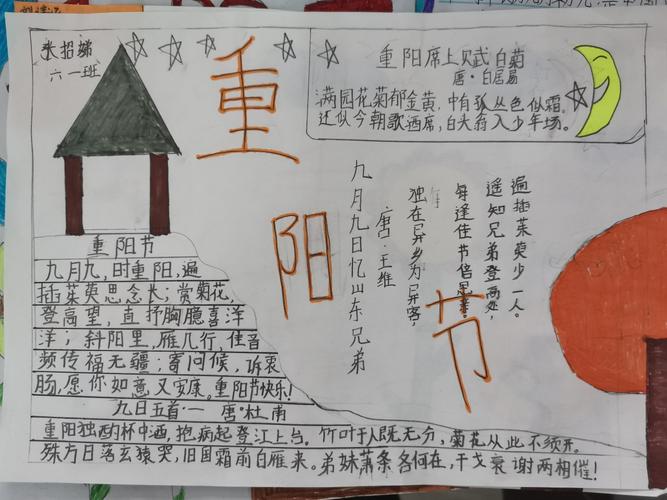 张招娣
六一班
重阳节
重阳席上赋白菊
唐·白居易
满园花菊郁金黄,中有孤丛色似霜。
还似今朝歌酒席,白大翁入少年场。
九月九日忆山东兄弟
唐·王维
独在异乡为异客,
每逢佳节倍思亲。
遥知兄弟登高处,
遍插茱萸少一人。
重阳节
九月九,时重阳,遍
插茱萸思念长;赏菊花,
登高望,直抒胸臆喜洋
洋;斜阳里,雁几行,佳音
频传福无疆;寄问候,诉衷
肠,愿你如意又安康。重阳节快乐!
九日五首·一 唐·杜甫
重阳独酌杯中酒,抱病起登江上台。竹叶于人既无分,菊花从此不须开。
殊方日落玄猿哭,旧国霜前白雁来。弟妹萧条各何在,干戈衰谢两相催!